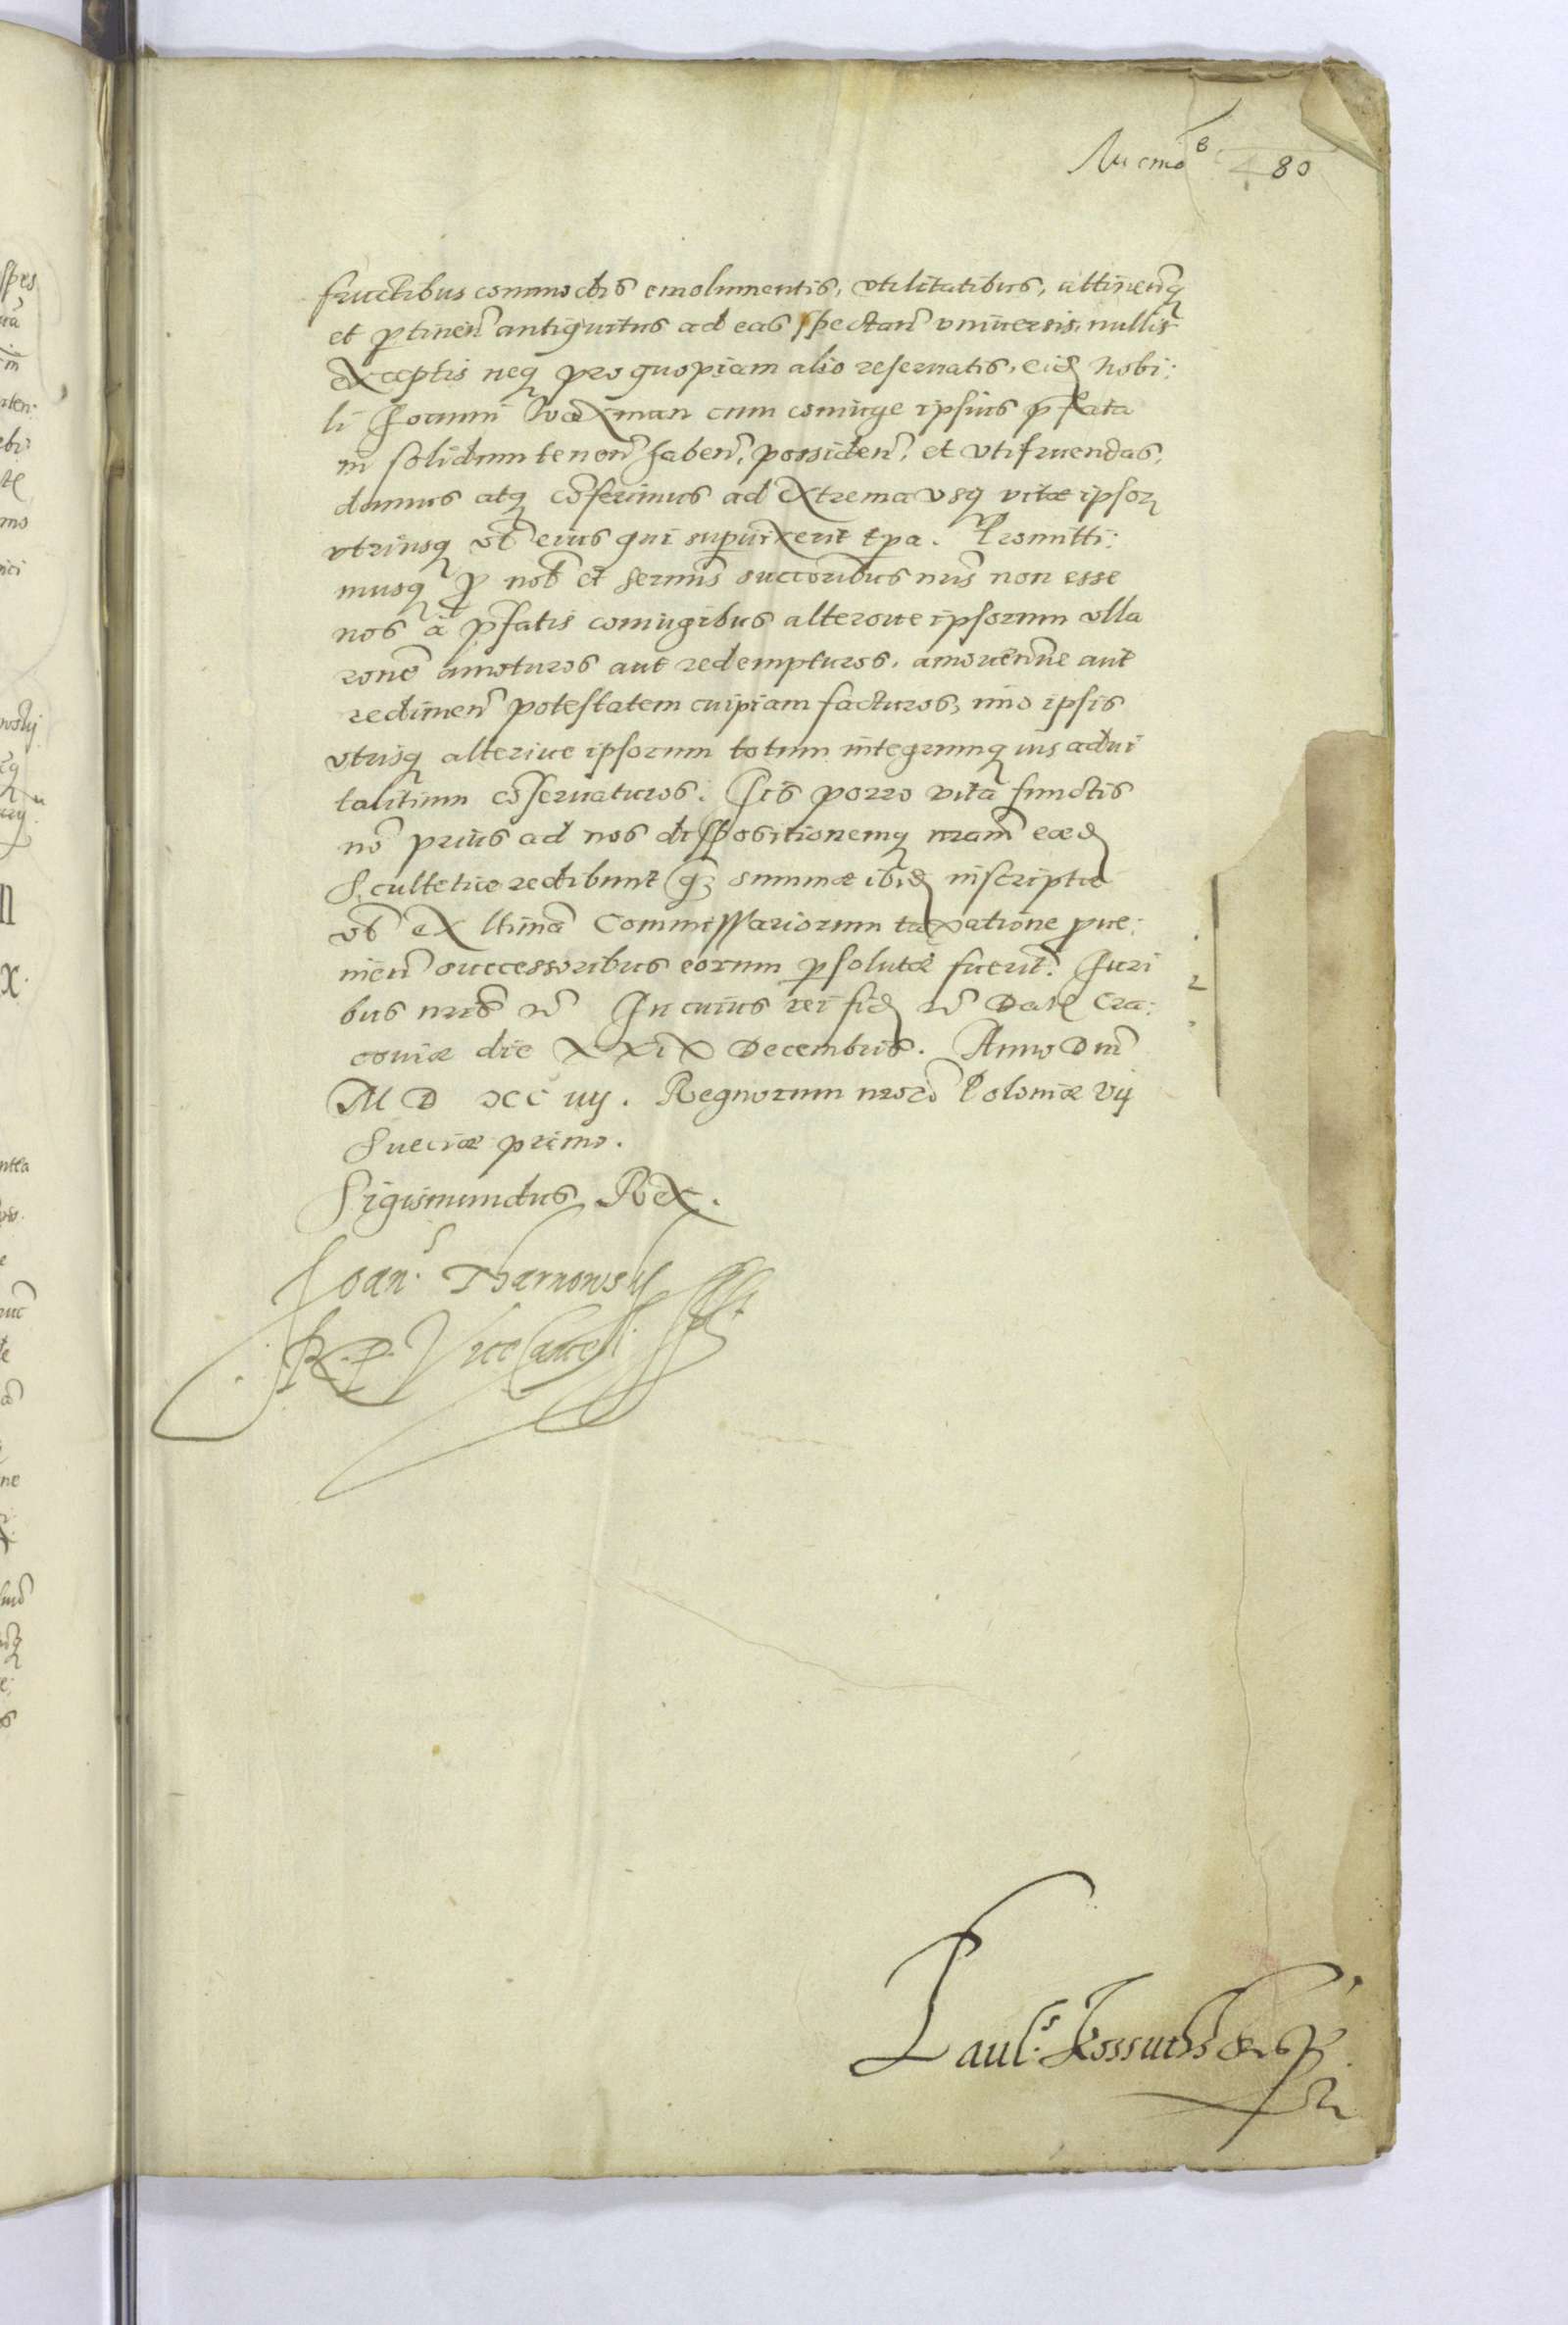 Листо 80
fructibus commodis emolumentis, vtilitatibus, attinenq
et ptinen antiquitus ad eas spectan vniuersis, nullis
exceptis neq pro quopiam alio reseruatis, eid Nobi:
li Joanni Waxman cum coniuge ipsius pfata
in solidum tenen haben, possiden, et vtifruendas,
damus atq coferimus ad extrema vsq vitæ ipsor
vtriusq vl eius qui supuixerit tpa. Promitti:
musq p nob et sermis succoribus nris non esse
nos à pfatis coniugibus alteroue ipsorum vlla
rone amoturos aut redempturos, amouenue aut
redimen potestatem cuipiam facturos, imo ipsis
vtrisq alteriue ipsorum totum integrumq ius adui
talitium coseruaturos. His porro vita functis
no prius ad nos dispositionemq nram eæd
Scultetiæ redibunt q summæ ibid inscriptæ
vl ex ltima Commissariorum taxatione pue:
nien successoribus eorum psolutæ fuerit. Juri
bus nris In cuius rei fid Dat Cra:
couiæ die XXIX Decembris. Anno Dni
M D XC iiij. Regnorum nroru Poloniæ vij
Sueciæ primo.
Sigismundus Rex.
Joan. Tharnowsky
R. P. ViceCancell
Paul. Kossuthski